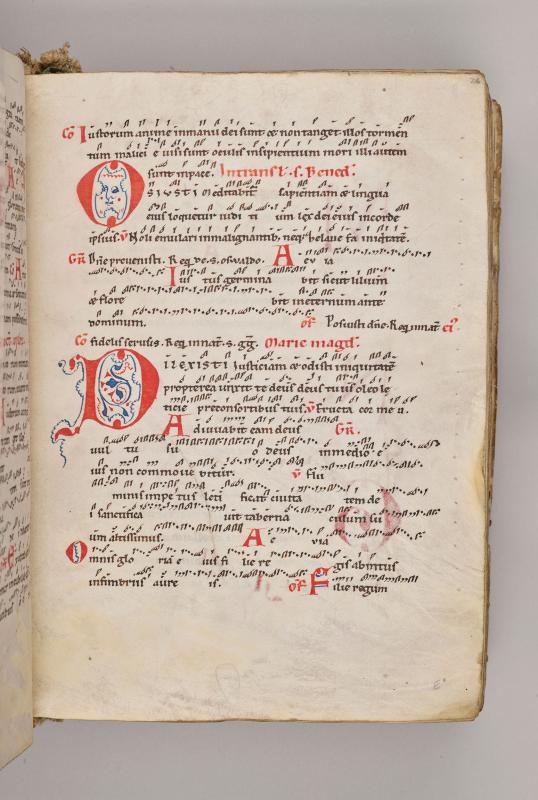 Co Iustorum anime in manu dei sunt & non tanget illos tormen
tum malicie uisi sunt oculis insipientium mori illi autem
sunt in pace. In transl. s. Bened.
Os iusti meditabit sapientiam & lingua
eius loquetur iudi ti um lex dei eius in corde
ipsius. V Noli emulari in malignantib; neq; faci iniqitate.
Gr Dne preuenisti. Req. de. s. osualdo. A e u ia
Ius tus germina bit sicut lilium
& flore bit in eternum ante
dominum. Of Posuisti dne. Req. in nat
Co fidelis seruus. Req. in nat. s. gg. Marie magd.
Dilexisti iusticiam & odisti iniquitate
propterea unxit te deus deus tuus oleo le
ticie pre consortibus tuis. V Eructa cor me u.
Adiuuabit eam deus Gr.
uul tu su o deus in medio e
ius non commoue bitur. V Flu
minis impe tus leti ficat ciuita tem de
i sanctifica uit taberna culum su
um altissimus. A e uia
Omnis glo ria e ius fi lie re gis ab intus
in fimbriis aure is. Of Filie regum